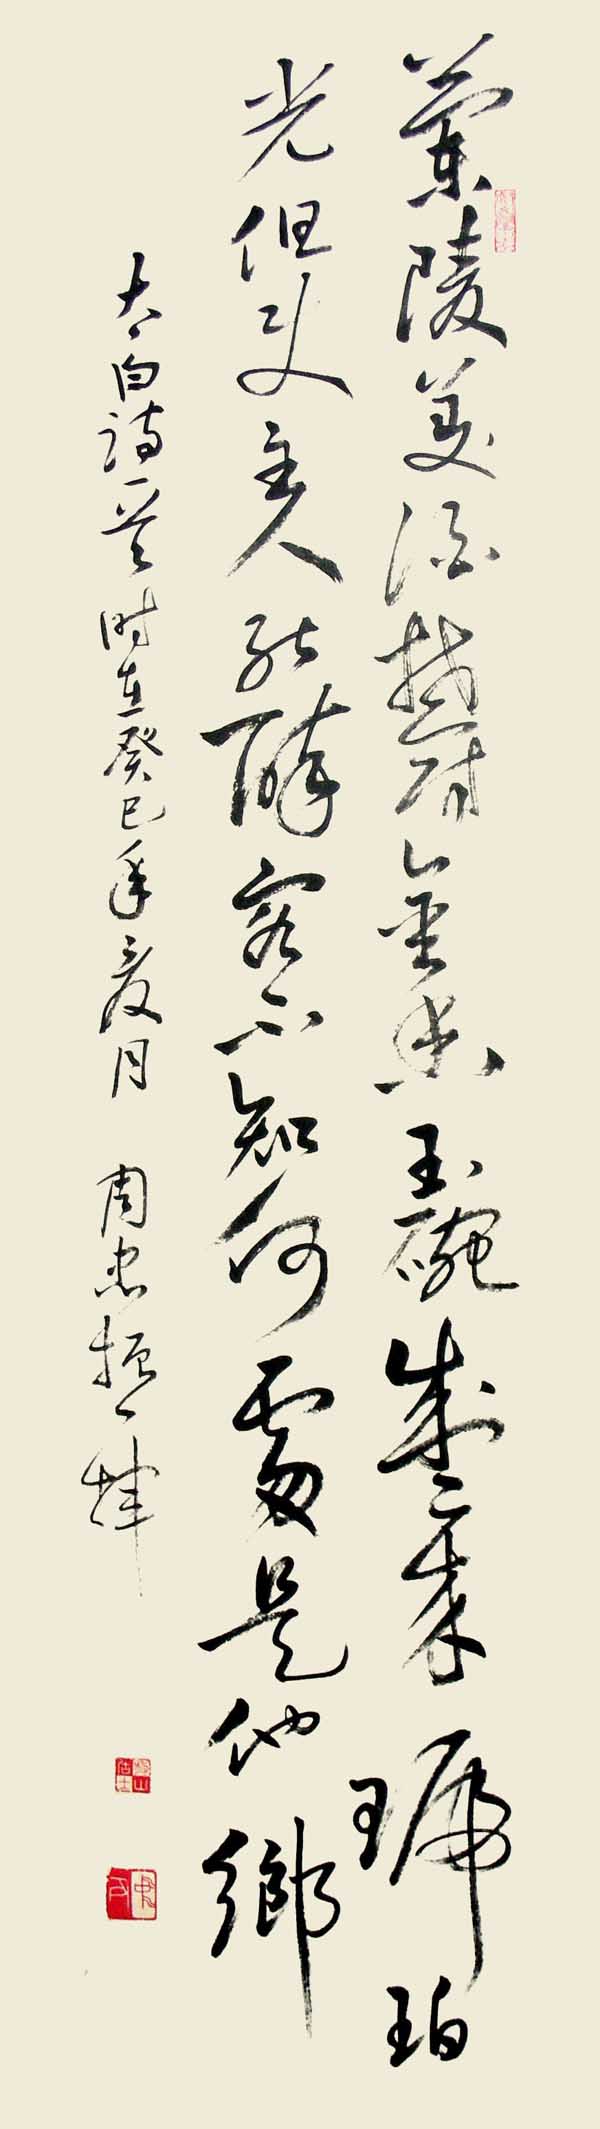 蘭陵美酒鬱金香玉碗盛來琥珀
光但使主人能醉客不知何處是他鄉
太白詩一首时在癸巳年夏月 周忠振书